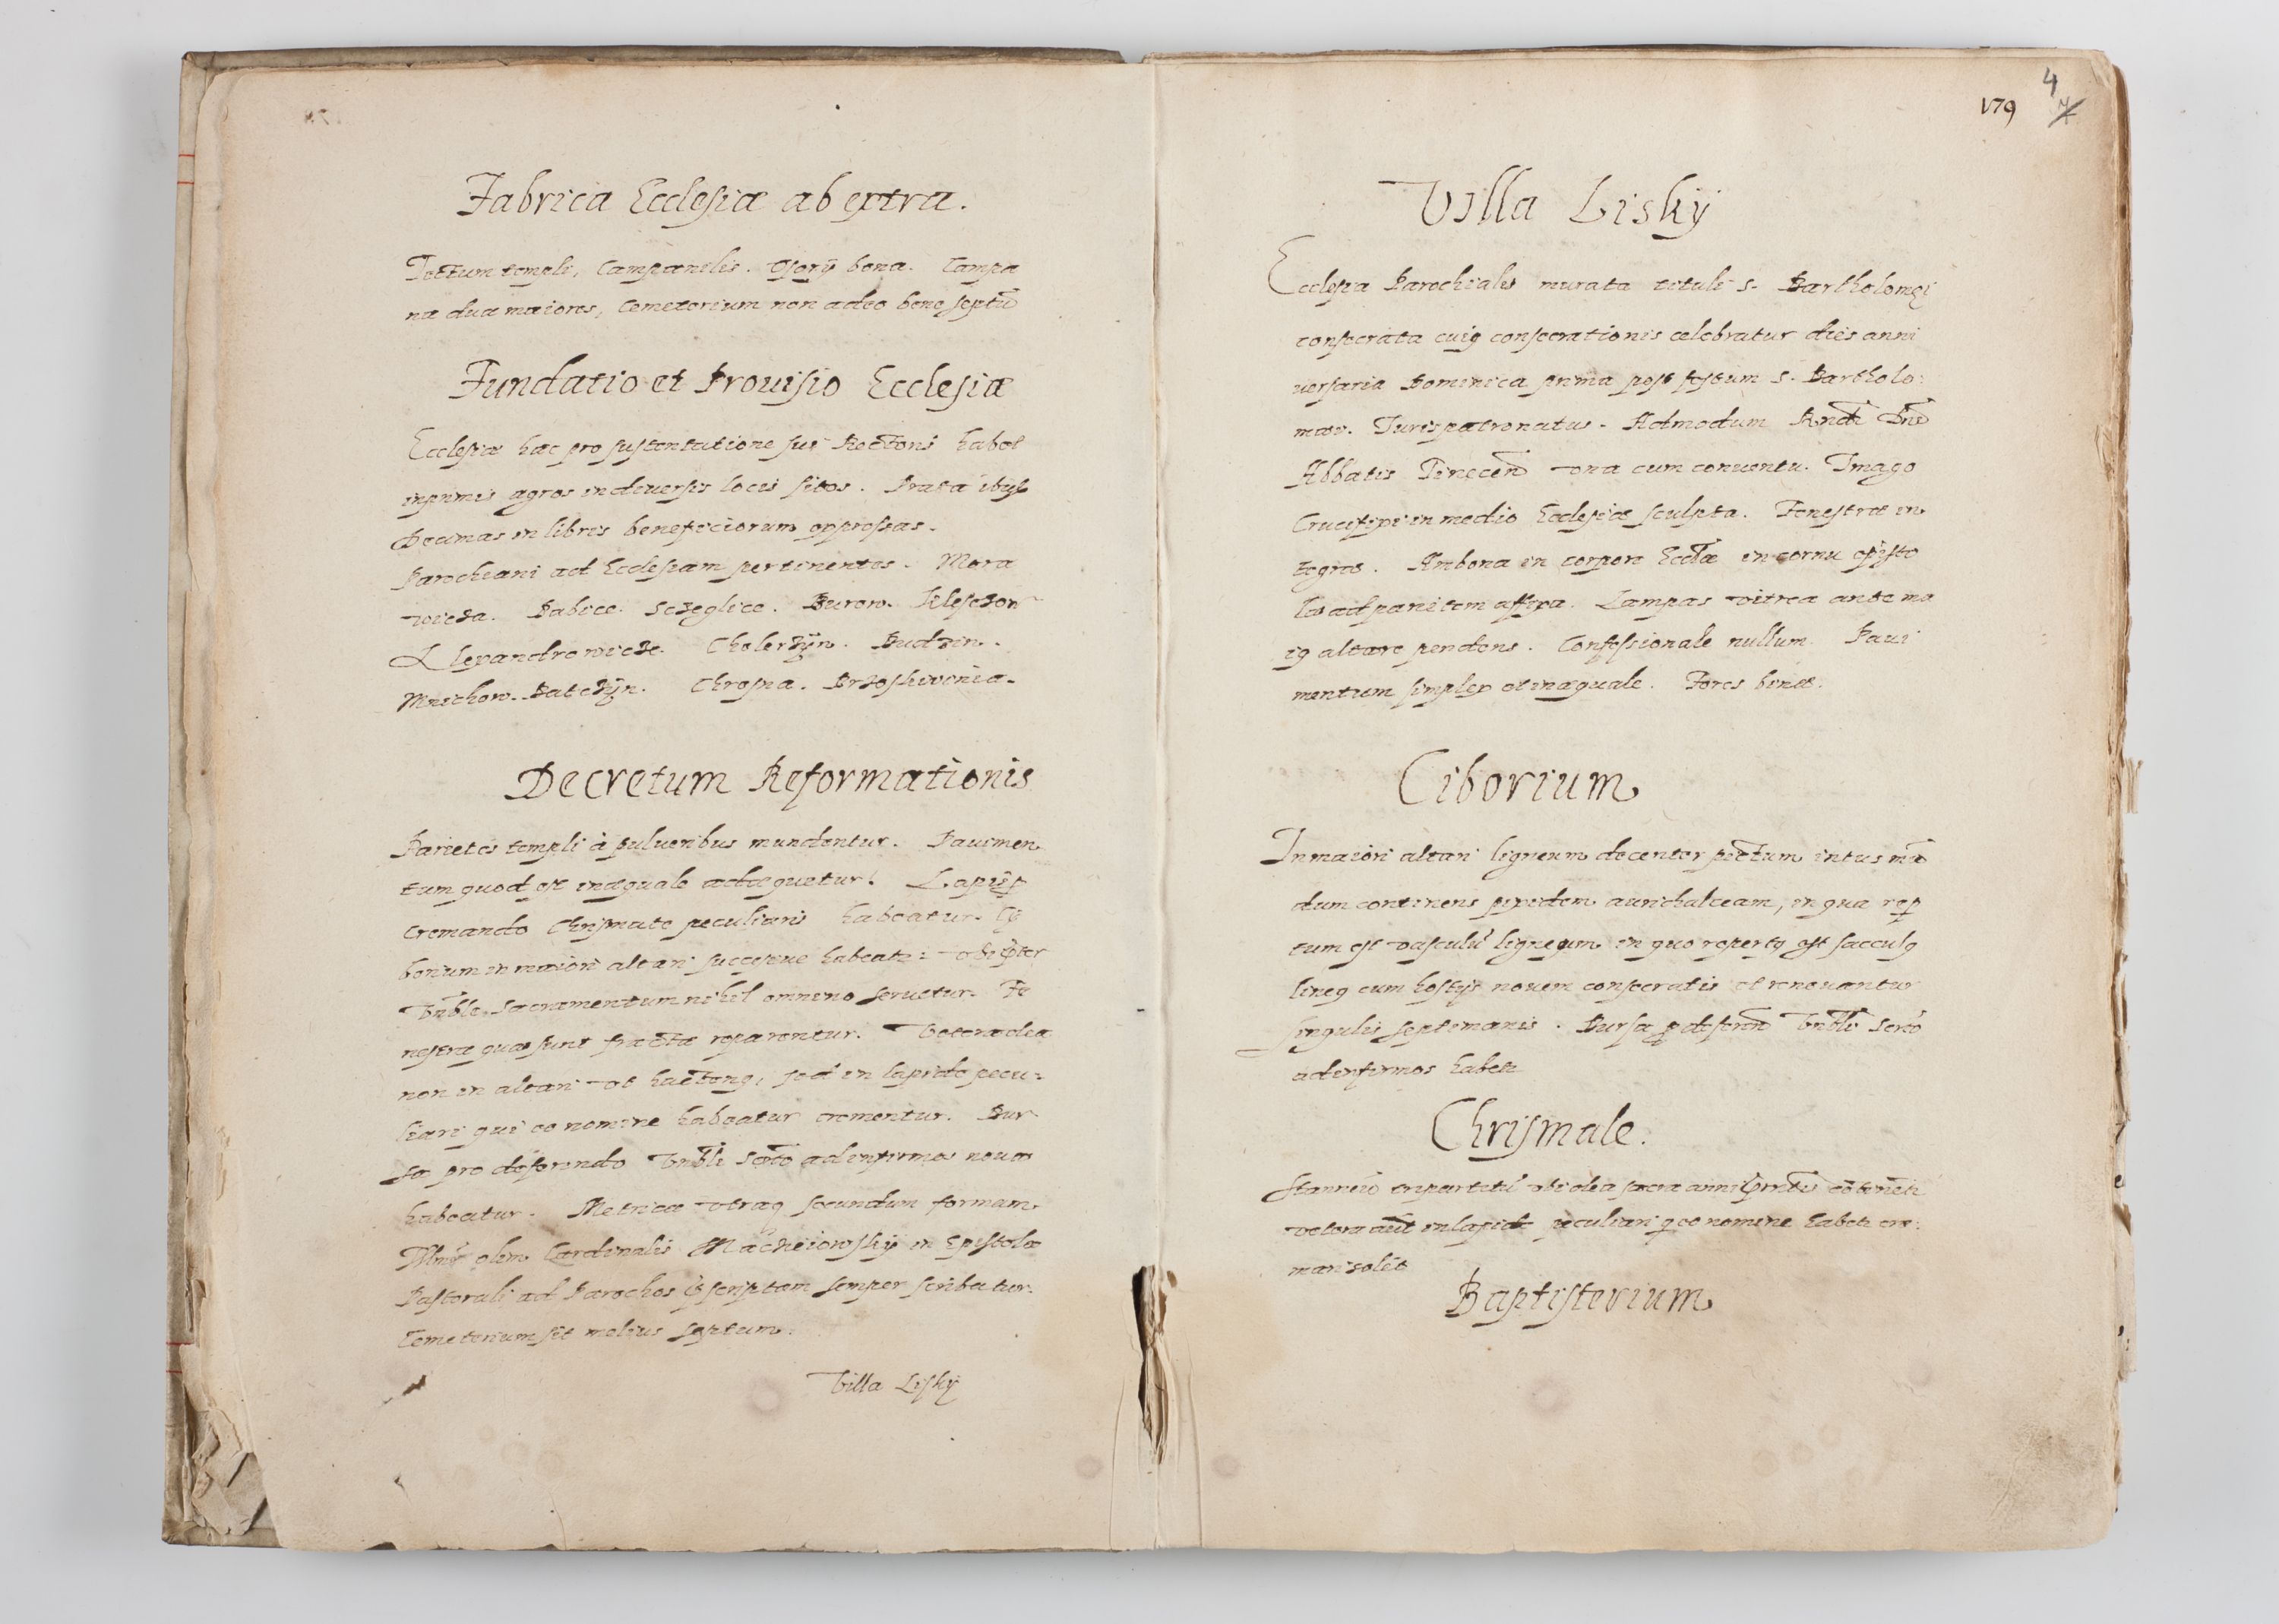 Fabrica Ecclesiæ ab extra.
Tectum templi, Campanilis. Osorij bona. Campa
næ duæ maiores, Cemeterium non adeo bene septū
Fundatio et Prouisio Ecclesiæ
Ecclesiæ hæc pro sustentatione sui Rectoris habet
inprimis agros in diuersis locis sitos. Prata ibus
Decimas in libris beneficiorum expressas.
Parochiani ad Ecclesiam pertinentes. Mora
wicza. Babice. Sczeglice. Burow.
Alexandrowicze. Cholerzÿn. Budzin.
Mnichow. Batczÿn. Chrosna. Brzoskwinia.
Decretum Reformationis
Parietes templi à pulueribus mundentur. Pauimen
tum quod est inæquale adæquetur.
cremando Chrismate peculiaris habeatur. Cy
borium in maiori altari successiue habeatr: vbi pter
Vnble. Sacramentum nihil omnino seruetur. Fe
nestræ quæ sunt fractæ reparentur. Vetera olea
non in altari vt hactenq, sed in lapide pecu:
liari qui eo nomine habeatur crementur. Bur
sa pro deferendo Vnbli Scto ad infirmos noua
habeatur. Metricæ vtraq secundum formam
Illmi olim Cardinalis Macieiowskÿ in Epistola
Pastorali ad Parochos pscriptam semper scribatur.
Cemeterium sit melius septum.
Villa Liskÿ
179 4
Villa Liskÿ
Ecclesia Parochialis murata tituli S. Bartholomęi
consecrata cuiq consecrationis celebratur dies anni
uersaria Dominica prima post festum S. Bartholo:
mæi. Jurispatronatus. Admodum Rndi Dni
Abbatis Tinecen vna cum conuentu. Imago
Crucifixi in medio Ecclesiæ sculpta. Fenestræ in
tegræ. Ambona in corpore Eccliæ in cornu episto
læ ad parietem affixa. Lampas vitrea ante ma
iq altare pendens. Confessionale nullum. Paui
mentum simplex et inæquale. Fores binæ.
Ciborium
In maiori altari ligneum decenter pictum intus mū
dum continens pixidem aurichalceam, in qua rep
tum est vasculū ligneum in quo repertq est sacculq
lineq cum hostijs nouem consecratis et renouantur
singulis septimanis. Bursa p deferen Vnbli Scto
ad infirmos habetr
Chrismale.
Stanneū tripartitū vbi olea sacra anni pntis cōtinētr
vetera aūt in lapide peculiari q eo nomine habetr cre:
mari solēt
Baptisterium